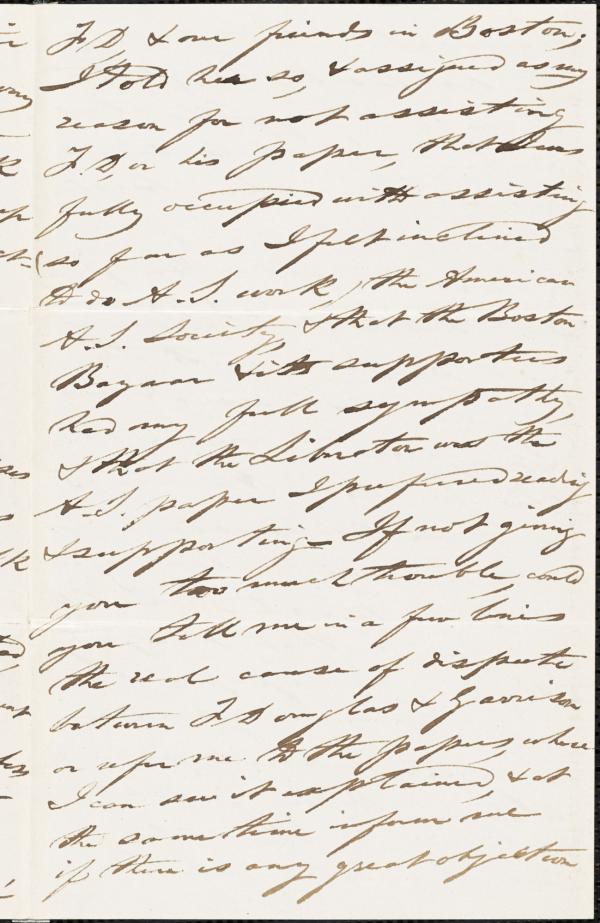 F. D, & our friends in Boston;
I told her so, & assigned as my
reason for not assisting
F. D, or his paper, that I was
fully occupied with assisting
(so far as I felt inclined
to do A. S. work), the American
A. S. Society, & that the Boston
Bazaar & its supporters
had my full sympathy,
& that the Liberator was the
A. S. paper I prefered reading
& supporting – If not giving
you too much trouble, could
you tell me in a few lines
the real cause of dispute
between F. Douglas & Garrison
or refer me to the papers, where
I can see it explained, & at
the same time inform me
if there is any great objection